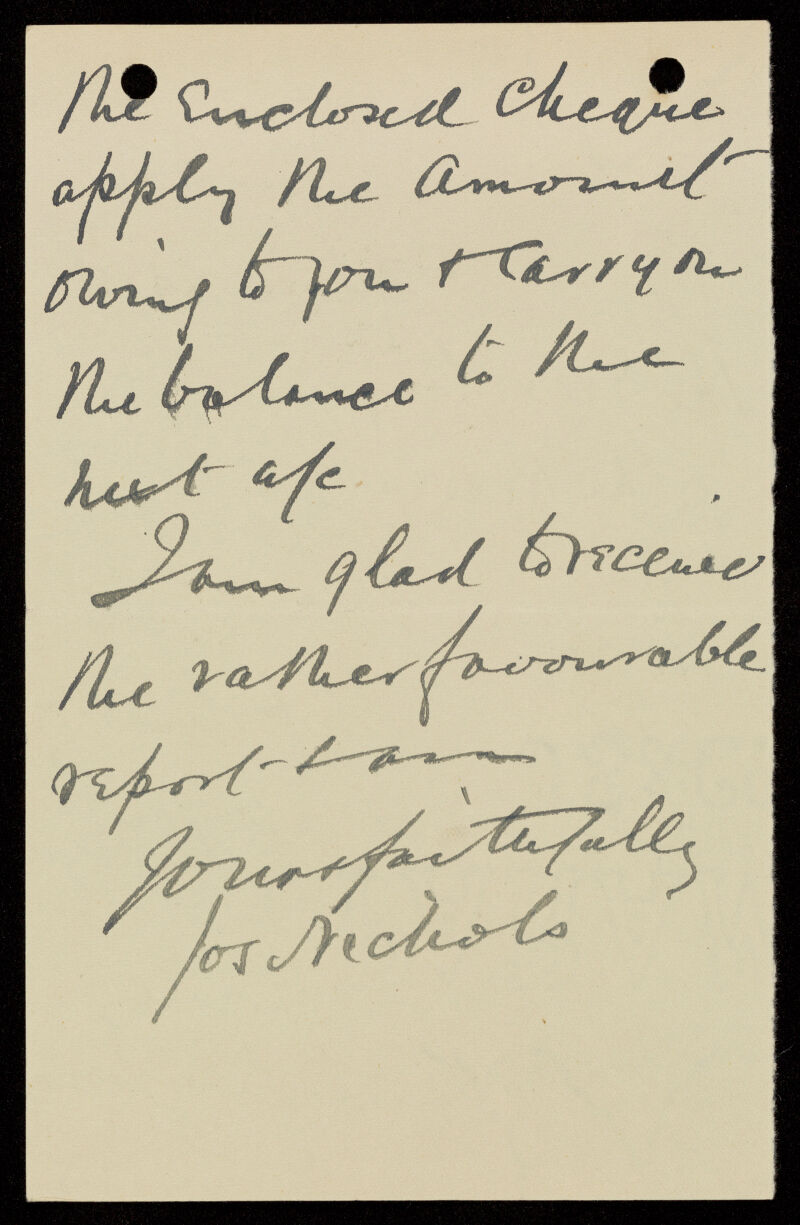 the Enclosed Cheque
apply the Amount
owing to you & Carry on
the balance to the
next a/c
I am glad to receive
the rather favourable
report & am
Yours faithfully
Jos Nichols